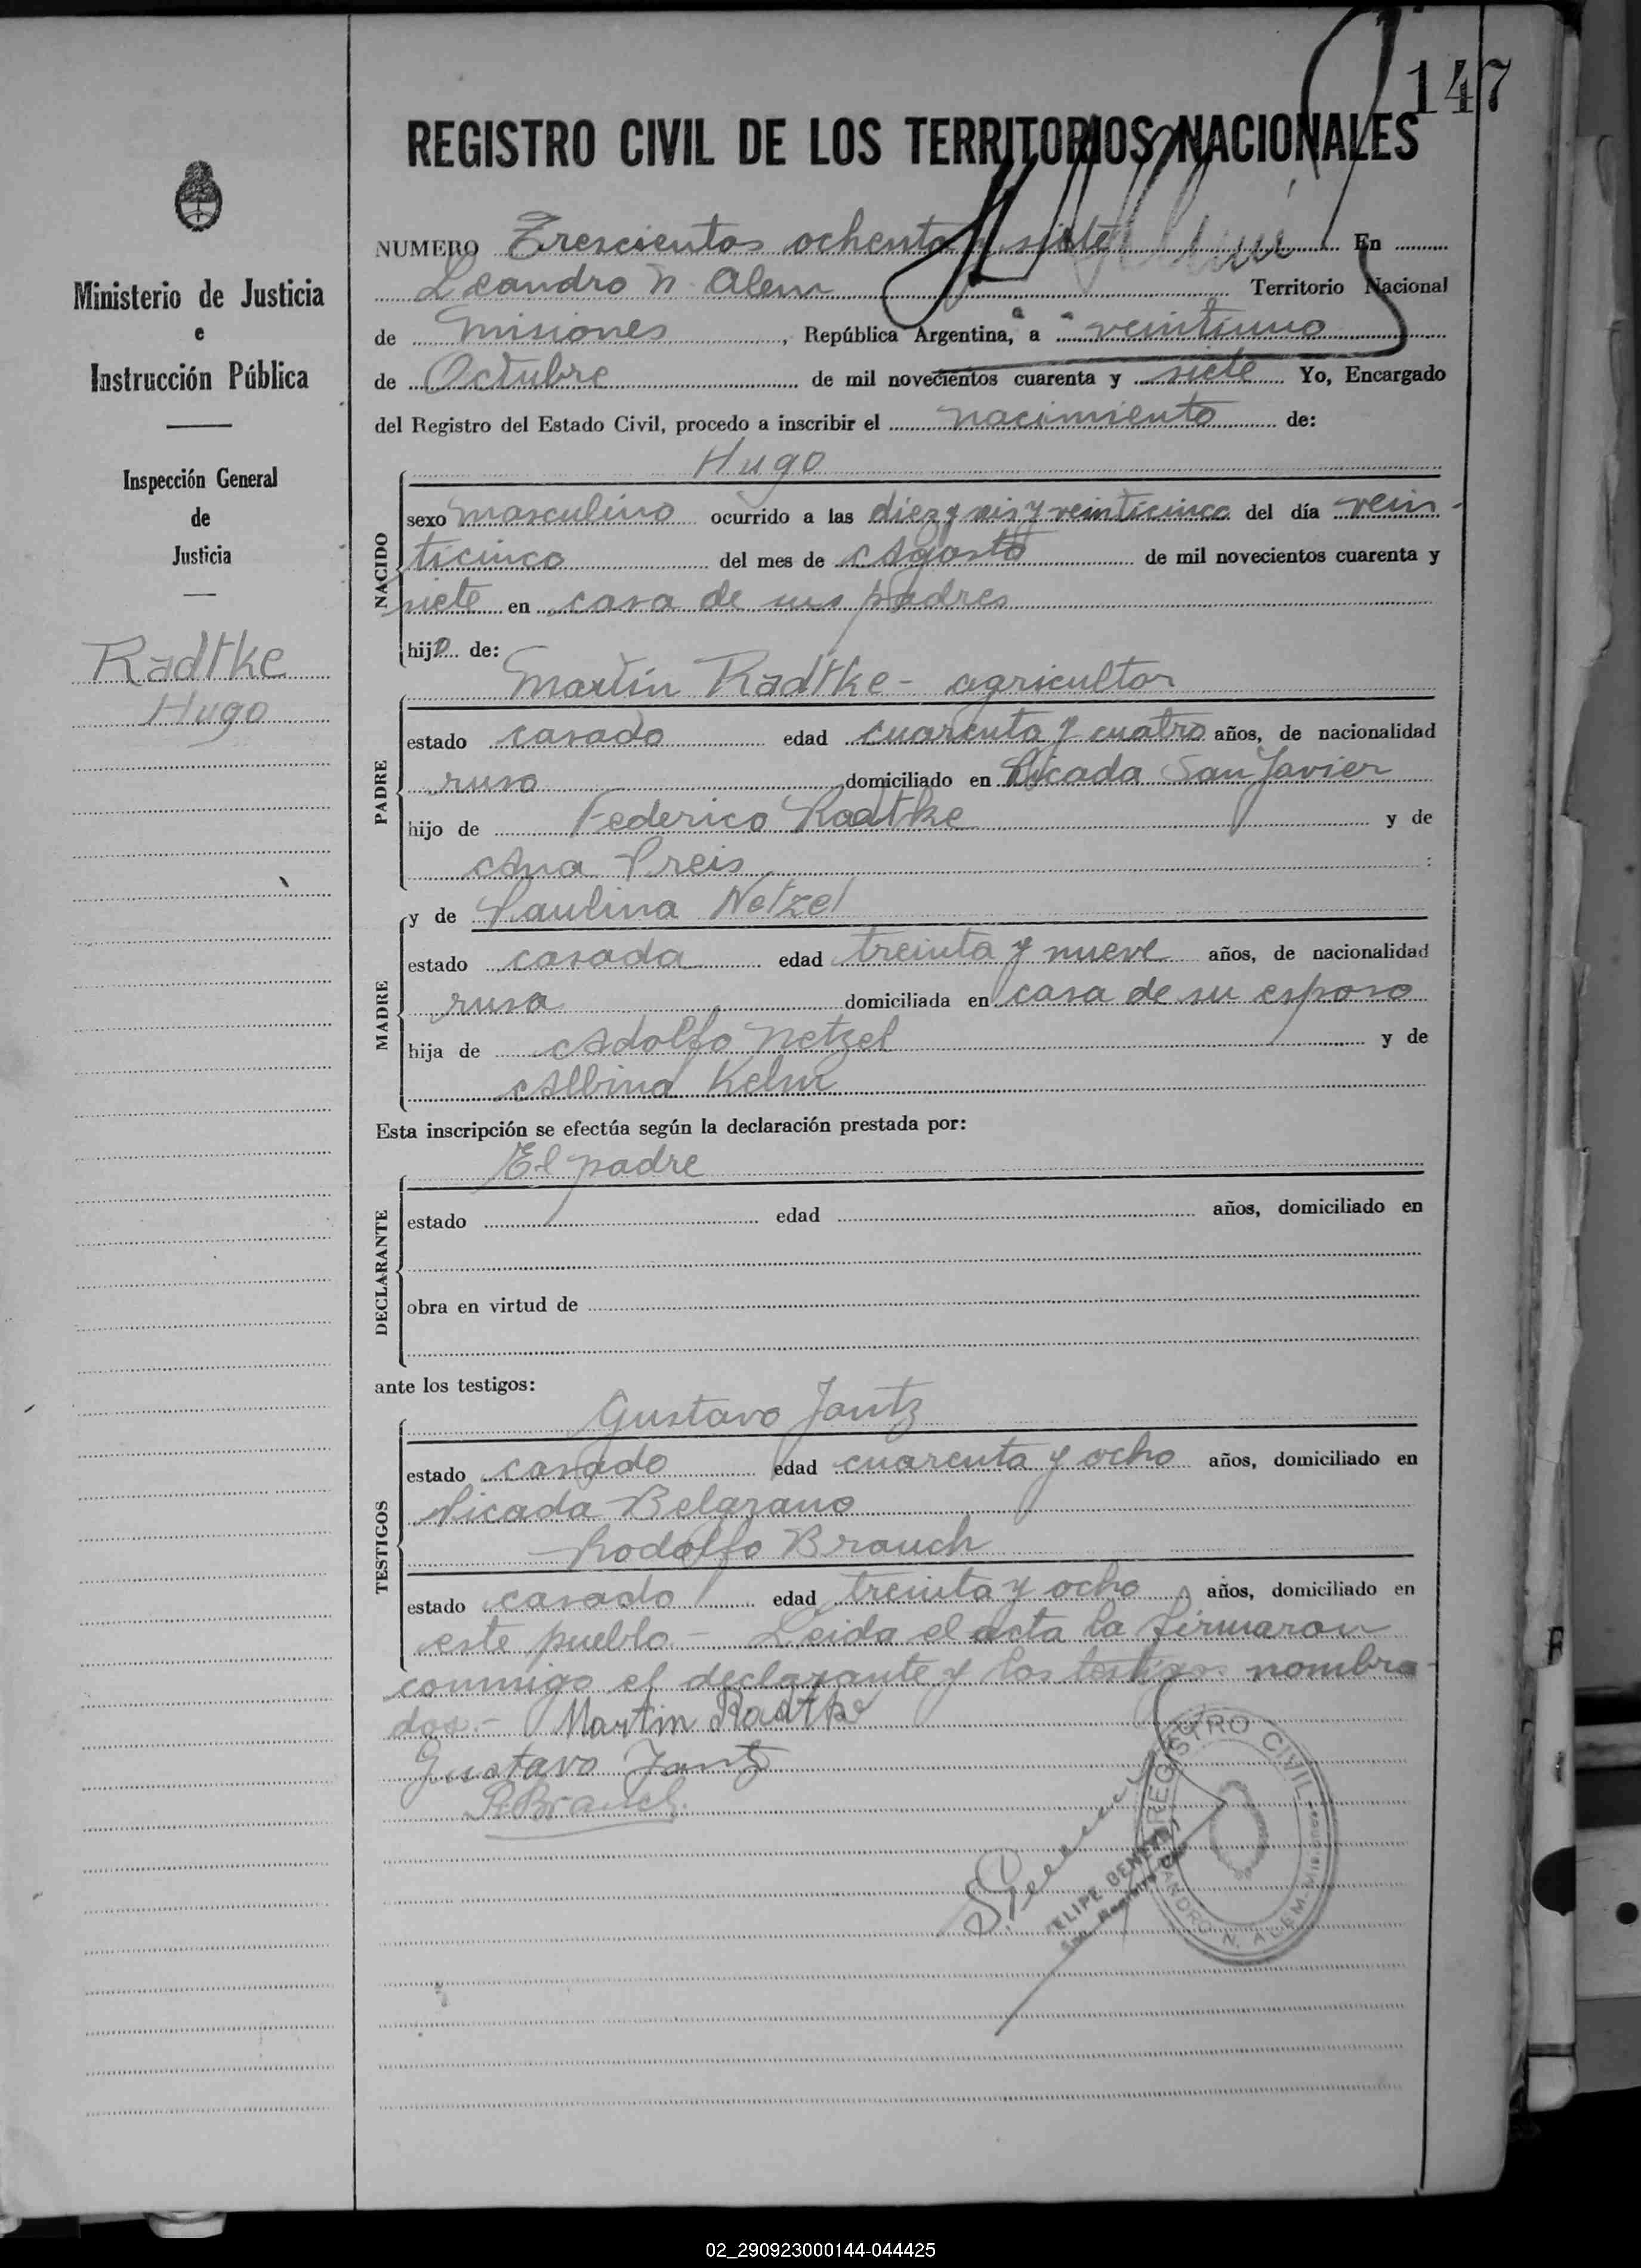 147
REGISTRO CIVIL DE LOS TERRITORIOS NACIONALES
NUMERO Trescientos ochenta y siete En
Leandro N. Alem Territorio Nacional
de Misiones, República Argentina, a veintiuno
de Octubre de mil novecientos cuarenta y siete Yo, Encargado
del Registro del Estado Civil, procedo a inscribir el nacimiento de:
Ministerio de Justicia
e
Instrucción Pública
Inspección General
de
Justicia
Radtke
Hugo
NACIDO
Hugo
sexo masculino ocurrido a las diez y seis y veinticinco del día vein-
ticinco del mes de Agosto de mil novecientos cuarenta y
siete en casa de sus padres
hijo de:
PADRE
Martin Radtke - agricultor
estado casado edad cuarenta y cuatro años, de nacionalidad
ruso domiciliado en Picada San Javier
hijo de Federico Radtke y de
Ana Preis :
MADRE
y de Paulina Netzel
estado casada edad treinta y nueve años, de nacionalidad
rusa domiciliada en casa de su esposo
hija de Adolfo Netzel y de
Albina Kelm
Esta inscripción se efectúa según la declaración prestada por:
DECLARANTE
El padre
estado edad años, domiciliado en
obra en virtud de
ante los testigos:
TESTIGOS
Gustavo Jantz
estado casado edad cuarenta y ocho años, domiciliado en
Picada Belgrano
Rodolfo Brauch
estado casado edad treinta y ocho años, domiciliado en
este pueblo.- Leida el acta la firmaron
conmigo el declarante y los testigos nombra-
dos.- Martin Radtke
Gustavo Jantz
R. Brauch.
REGISTRO CIVIL
LEANDRO N. ALEM
FELIPE
02_290923000144-044425